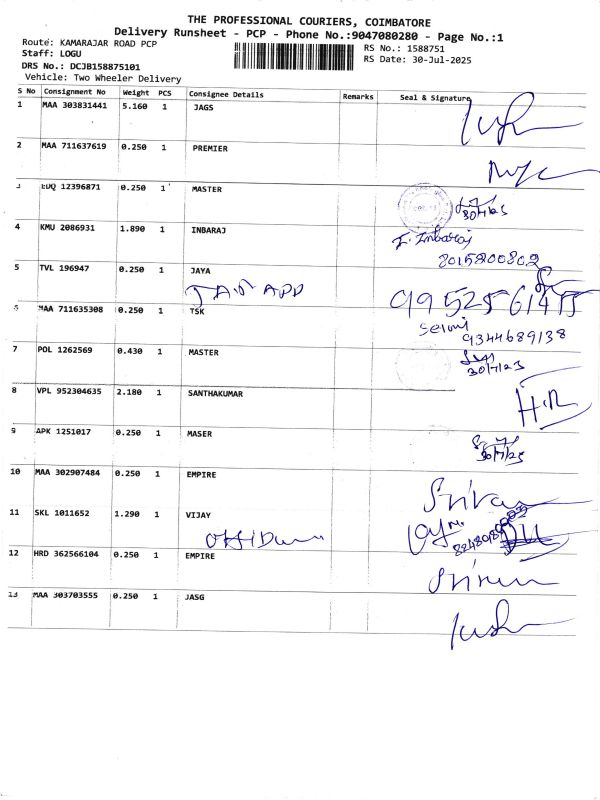 THE PROFESSIONAL COURIERS, COIMBATORE
Delivery Runsheet - PCP - Phone No.:9047080280 - Page No.:1
Route: KAMARAJAR ROAD PCP
Staff: LOGU
DRS No.: DCJB158875101
Vehicle: Two Wheeler Delivery
RS No.: 1588751
RS Date: 30-Jul-2025
S No Consignment No Weight PCS Consignee Details Remarks Seal & Signature
1 MAA 303831441 5.160 1 JAGS
2 MAA 711637619 0.250 1 PREMIER
3 EDQ 12396871 0.250 1 MASTER
30/7/25
4 KMU 2086931 1.890 1 INBARAJ
I. Inbaraj
8015200802
5 TVL 196947 0.250 1 JAYA
6 MAA 711635308 0.250 1 TSK
Selvi
9344689138
7 POL 1262569 0.430 1 MASTER
30/7/25
8 VPL 952304635 2.180 1 SANTHAKUMAR
9 APK 1251017 0.250 1 MASER
30/7/25
10 MAA 302907484 0.250 1 EMPIRE
11 SKL 1011652 1.290 1 VIJAY
12 HRD 362566104 0.250 1 EMPIRE
13 MAA 303703555 0.250 1 JASG